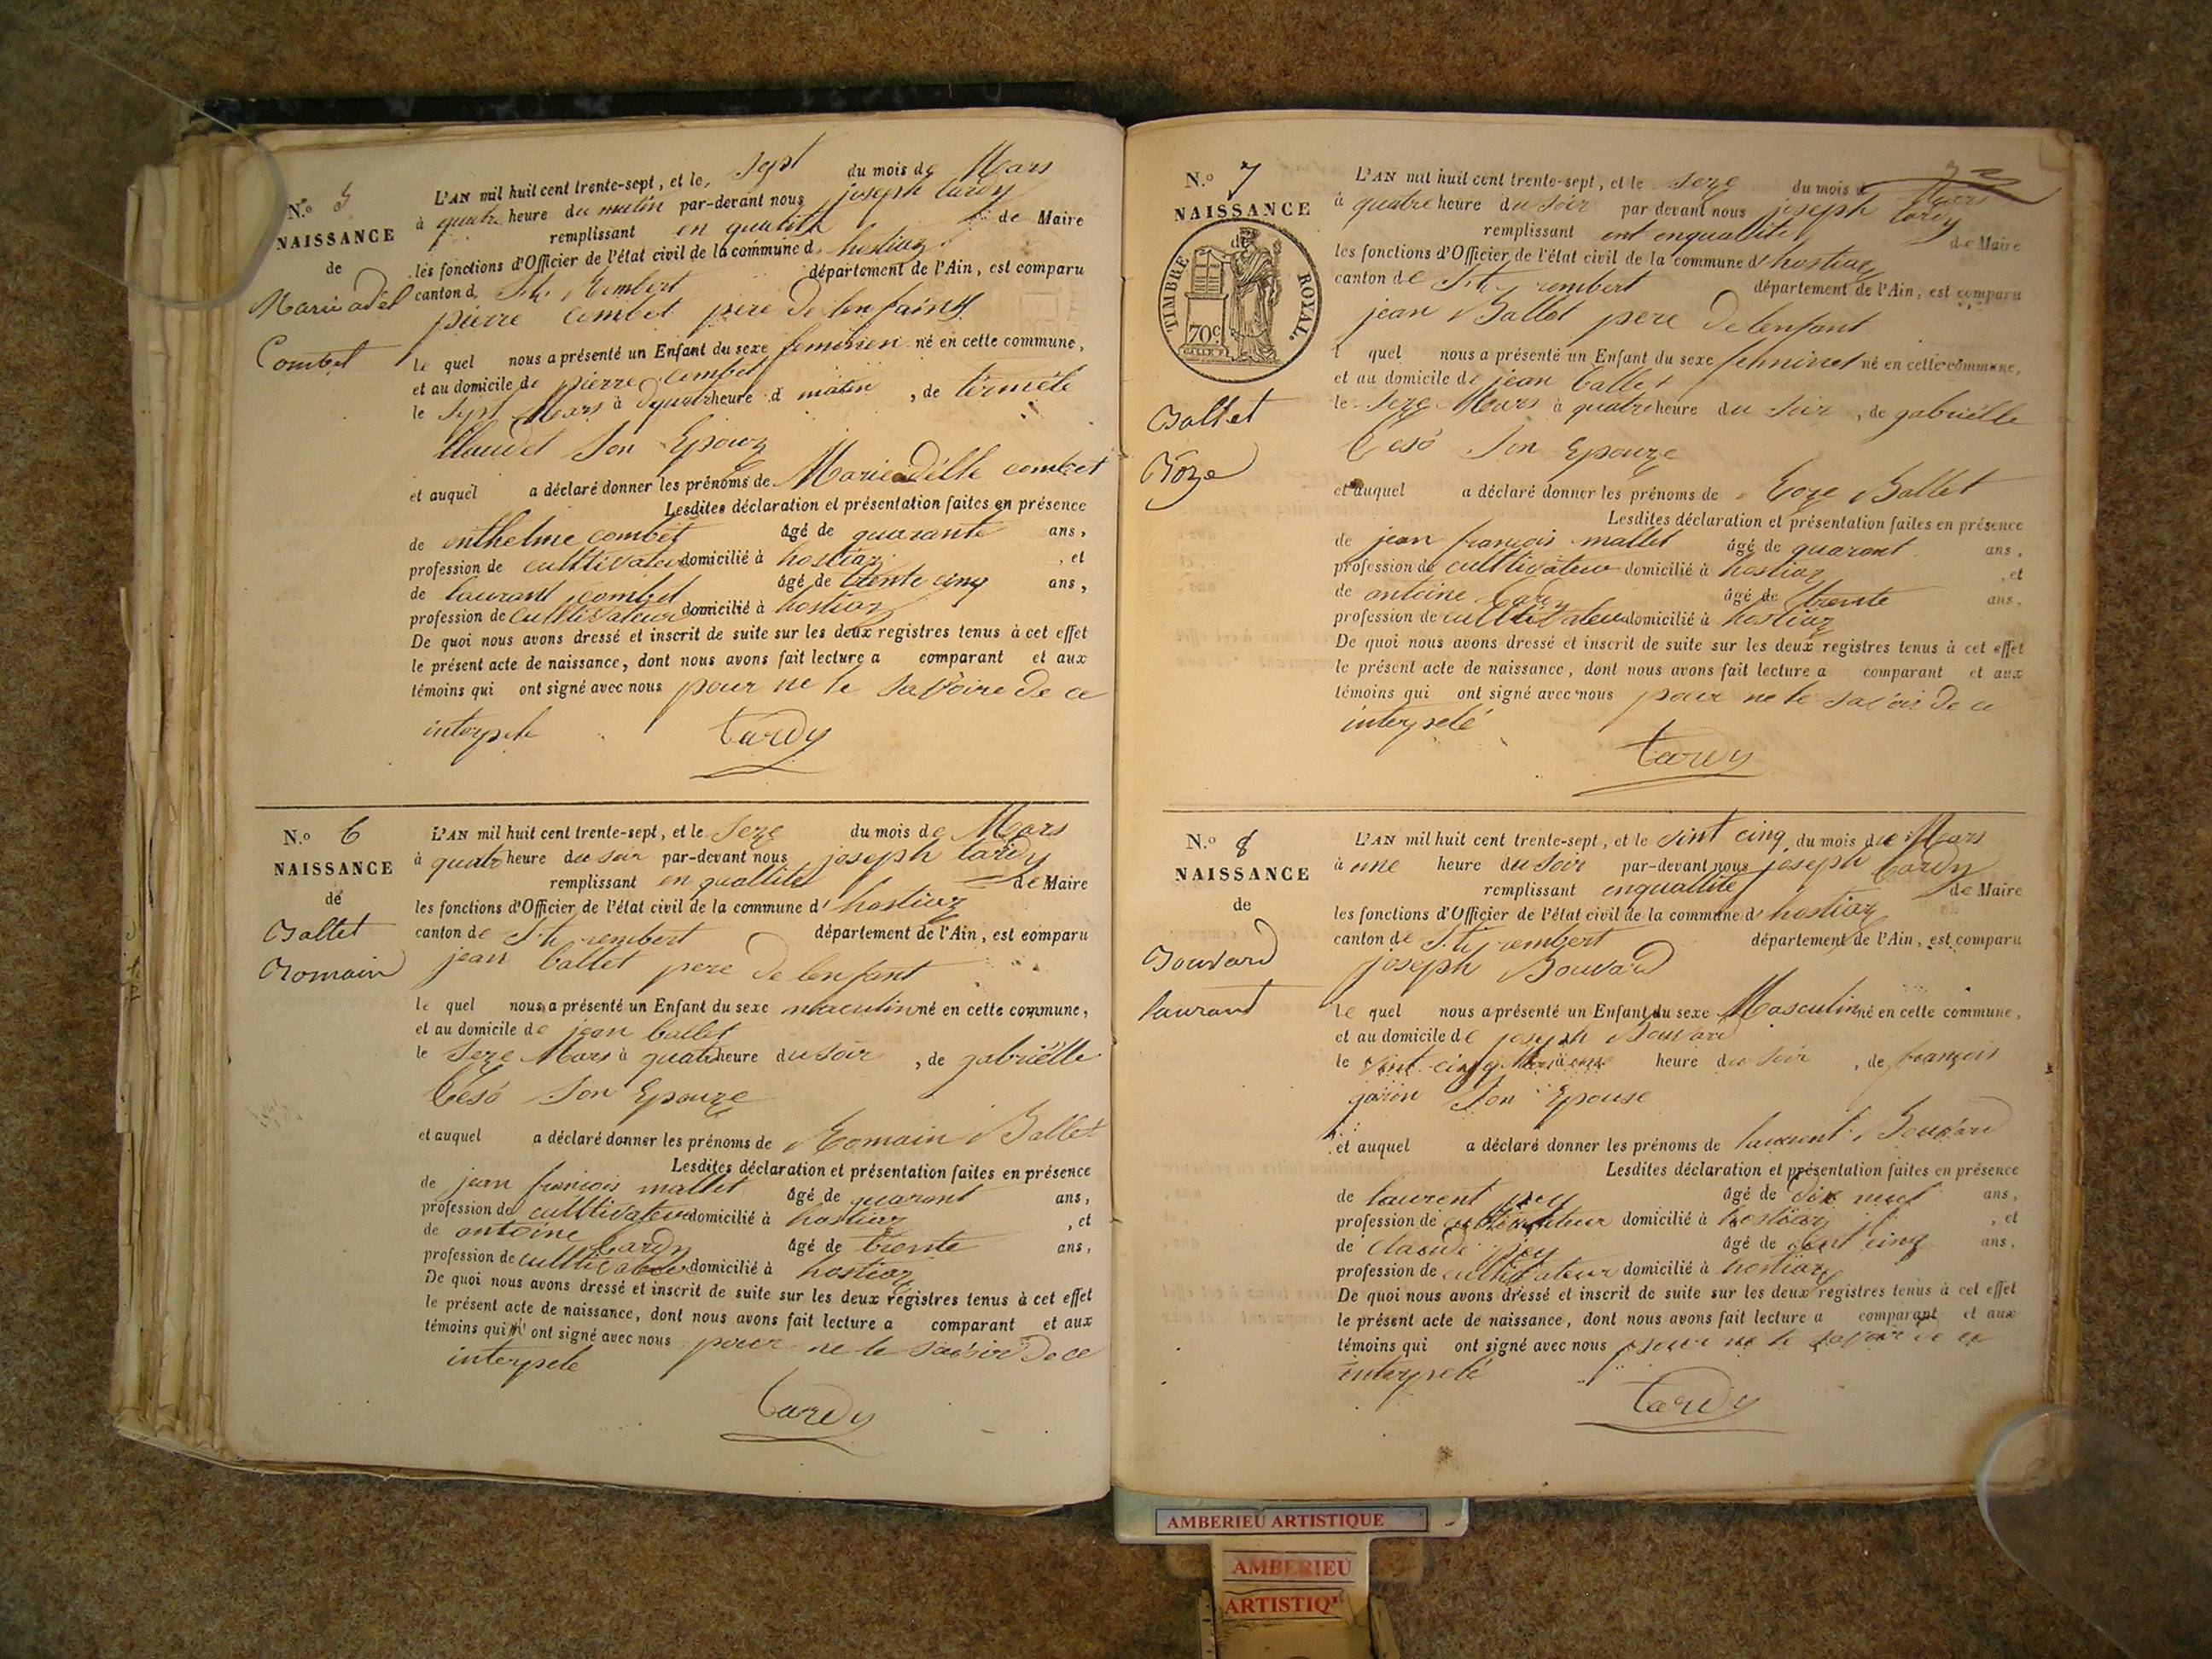 N.º 5
NAISSANCE
de
Marie adél
Combet
L'AN mil huit cent trente-sept, et le, Sept du mois de Mars
à quatre heure du matin par-devant nous joseph tardy
remplissant en qualité de Maire
les fonctions d'Officier de l'état civil de la commune d hostiaz
canton d St rembert département de l'Ain, est comparu
pierre combet pere de lenfaint
le quel nous a présenté un Enfant du sexe feminien né en cette commune,
et au domicile de pierre combet
le Sept Mars à quatr heure d matin, de
Claudet Son Epouz
et auquel a déclaré donner les prénoms de Marie adélle combet
Lesdites déclaration et présentation faites en présence
de enthelme combet âgé de quarante ans,
profession de culltivateur domicilié à hostiaz, et
de laurant combet âgé de trente cinq ans,
profession de culltivateur domicilié à hostiaz
De quoi nous avons dressé et inscrit de suite sur les deux registres tenus à cet effet
le présent acte de naissance, dont nous avons fait lecture a comparant et aux
témoins qui ont signé avec nous pour ne le savoire de ce
interpele
tardy
N.º 6
NAISSANCE
de
Ballet
Romain
L'AN mil huit cent trente-sept, et le Seze du mois de Mars
à quatr heure du soir par-devant nous joseph tardy
remplissant en quallité de Maire
les fonctions d'Officier de l'état civil de la commune d' hostiaz
canton de St rembert département de l'Ain, est comparu
jean ballet pere de lenfant
le quel nous a présenté un Enfant du sexe maculin né en cette commune,
et au domicile de jean ballet
le Seze Mars à quatr heure du soir, de gabriélle
Son Epouze
et auquel a déclaré donner les prénoms de Romain Ballet
Lesdites déclaration et présentation faites en présence
de jean françois mallet âgé de quarant ans,
profession de culltivateur domicilié à hostiaz, et
de antoine tardy âgé de trente ans,
profession de culltivateur domicilié à hostiaz
De quoi nous avons dressé et inscrit de suite sur les deux registres tenus à cet effet
le présent acte de naissance, dont nous avons fait lecture a comparant et aux
témoins qui n' ont signé avec nous pour ne le savoir de ce
interpele
tardy
N.º 7
NAISSANCE
de
TIMBRE ROYAL.
70c.
Ballet
Roze
L'AN mil huit cent trente-sept, et le seze du mois d Mars
à quatre heure du soir par devant nous joseph tardy
remplissant ent enquallité de Maire
les fonctions d'Officier de l'état civil de la commune d' hostiaz
canton de St rembert département de l'Ain, est comparu
jean Ballet pere de lenfant
l quel nous a présenté un Enfant du sexe né en cette commune,
et au domicile de jean ballet
le Seze Mars à quatre heure du soir, de gabriélle
Son Epouze
et auquel a déclaré donner les prénoms de Roze Ballet
Lesdites déclaration et présentation faites en présence
de jean françois mallet âgé de quarant ans,
profession de culltivateur domicilié à hostiaz, et
de antoine tardy âgé de trente ans,
profession de culltivateur domicilié à hostiaz
De quoi nous avons dressé et inscrit de suite sur les deux registres tenus à cet effet
le présent acte de naissance, dont nous avons fait lecture a comparant et aux
témoins qui ont signé avec nous pour ne le savoir de ce
interpelé
tardy
N.º 8
NAISSANCE
de
Bouvard
laurant
L'AN mil huit cent trente-sept, et le vint cinq du mois de Mars
à une heure du soir par-devant nous joseph tardy
remplissant enquallité de Maire
les fonctions d'Officier de l'état civil de la commune d' hostiaz
canton de St rembert département de l'Ain, est comparu
joseph Bouvard
le quel nous a présenté un Enfant du sexe Masculin né en cette commune,
et au domicile de joseph Bouvard
le vint cinq Mars à une heure du soir, de françois
Son Epouse
et auquel a déclaré donner les prénoms de laurent Bouvard
Lesdites déclaration et présentation faites en présence
de laurent âgé de dix neuf ans,
profession de cultivateur domicilié à hostiaz, et
de Claude âgé de vint cinq ans,
profession de cultivateur domicilié à hostiaz
De quoi nous avons dressé et inscrit de suite sur les deux registres tenus à cet effet
le présent acte de naissance, dont nous avons fait lecture a comparant et aux
témoins qui ont signé avec nous pour ne le savoir de ce
interpelé
tardy
AMBERIEU ARTISTIQUE
AMBERIEU
ARTISTIQ